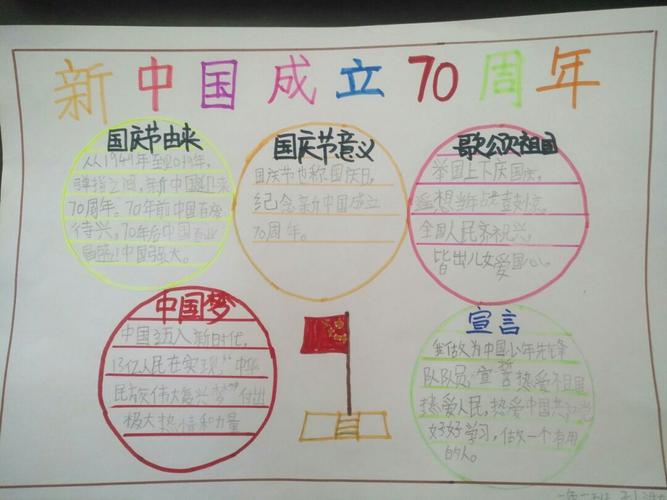 新中国成立70周年
国庆节由来
从1949年至2019年,
弹指之间,新中国迎来
70周年。70年前中国百废
待兴,70年后中国百业
中国强大。
国庆节意义
国庆节也称国庆日
纪念新中国成立
70周年。
歌颂祖国
举国上下庆国庆,
遥想当年战鼓
全国人民齐祝兴,
皆出儿女爱国心。
中国梦
中国迈入新时代,
13亿人民在实现“中华
民族伟大复兴梦”付出
极大热情和力量
宣言
做为中国少年先锋
队队员,宣誓热爱祖国
热爱人民,热爱中国共
好好学习,做一个有用
的人。